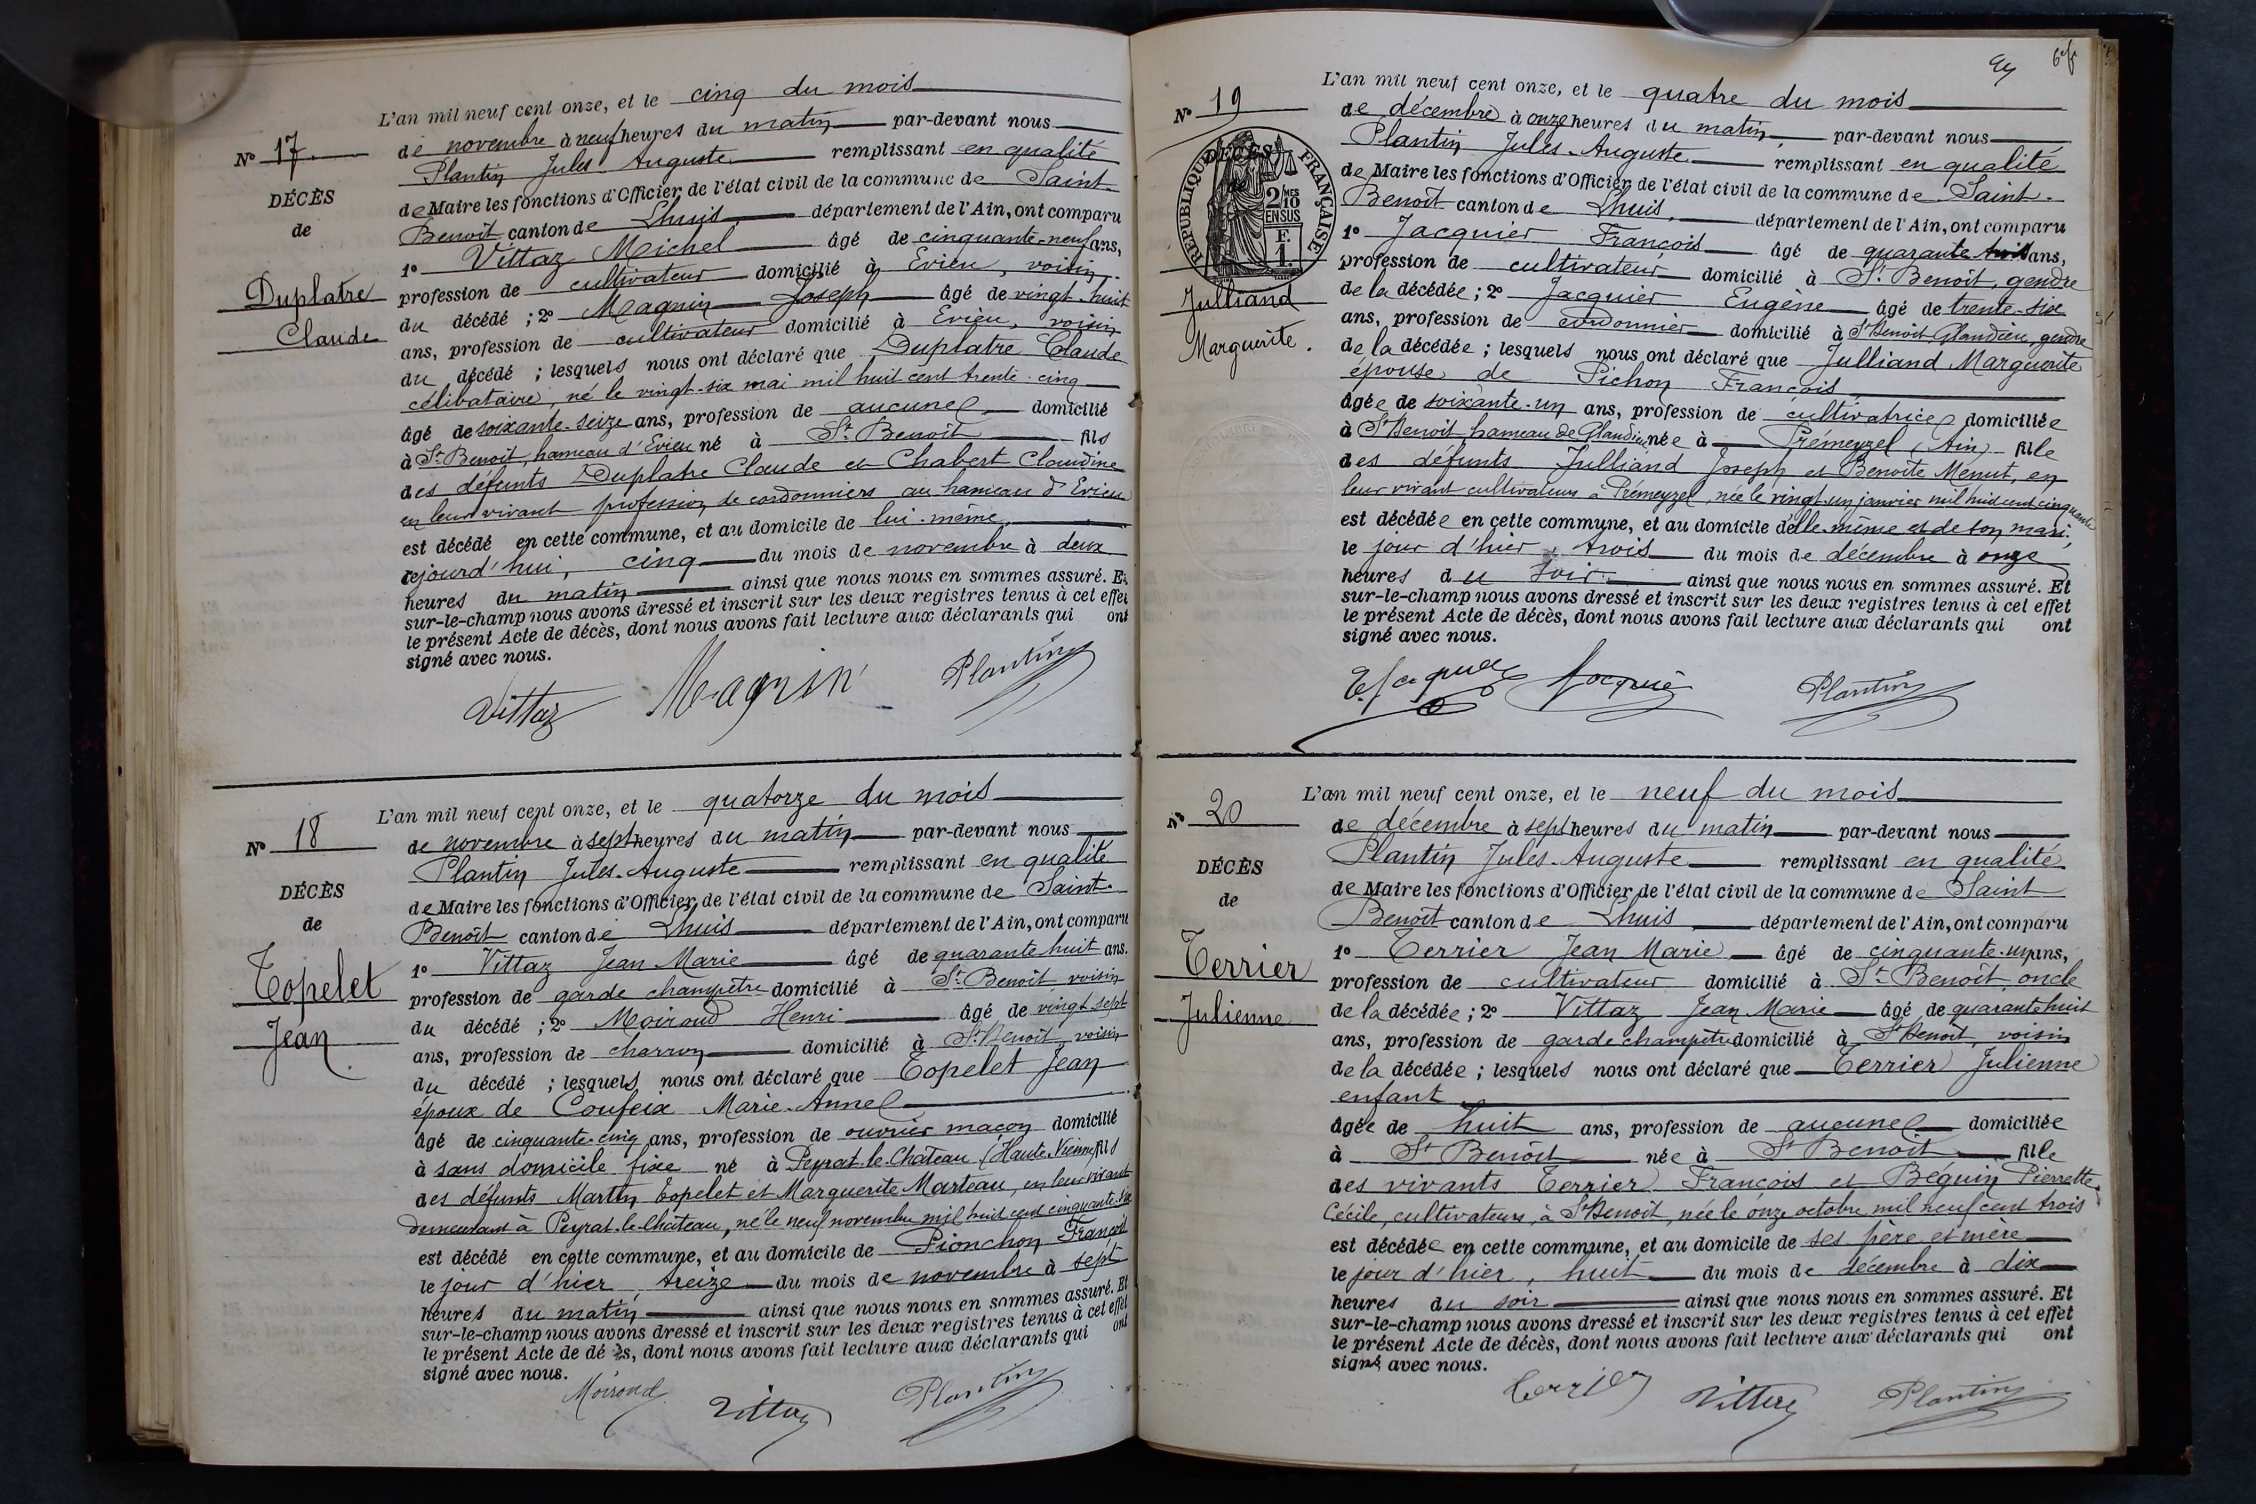 L'an mil neuf cent onze, et le cinq du mois
de novembre à neuf heures du matin par-devant nous
Plantin Jules Auguste remplissant en qualité
de Maire les fonctions d'Officier de l'état civil de la commune de Saint-
Benoît canton de Lhuis département de l'Ain, ont comparu
1º Vittaz Michel âgé de cinquante-neuf ans,
profession de cultivateur domicilié à Evieu, voisin
du décédé ; 2º Magnin Joseph âgé de vingt-huit
ans, profession de cultivateur domicilié à Evieu, voisin
du décédé ; lesquels nous ont déclaré que Duplatre Claude
célibataire, né le vingt-six mai mil huit cent trente-cinq
âgé de soixante-seize ans, profession de aucune domicilié
à St Benoît, hameau d'Evieu né à St Benoît fils
des défunts Duplatre Claude et Chabert Claudine
en leur vivant profession de cordonniers au hameau d'Evieu
est décédé en cette commune, et au domicile de lui-même
cejourd'hui, cinq du mois de novembre à deux
heures du matin ainsi que nous nous en sommes assuré. Et
sur-le-champ nous avons dressé et inscrit sur les deux registres tenus à cet effet
le présent Acte de décès, dont nous avons fait lecture aux déclarants qui ont
signé avec nous.
Vittaz Magnin Plantin
Nº 17
DÉCÈS
de
Duplatre
Claude
L'an mil neuf cent onze, et le quatorze du mois
de novembre à sept heures du matin par-devant nous
Plantin Jules-Auguste remplissant en qualité
de Maire les fonctions d'Officier de l'état civil de la commune de Saint-
Benoît canton de Lhuis département de l'Ain, ont comparu
1º Vittaz Jean Marie âgé de quarante huit ans.
profession de garde champêtre domicilié à St Benoît, voisin
du décédé ; 2º Moiroud Henri âgé de vingt sept
ans, profession de charron domicilié à St Benoît, voisin
du décédé ; lesquels nous ont déclaré que Topelet Jean
époux de Coufeix Marie-Anne
âgé de cinquante-cinq ans, profession de ouvrier maçon domicilié
à sans domicile fixe né à Peyrat-le-Château (Haute-Vienne) fils
des défunts Martin Topelet et Marguerite Marteau, en leur vivant
demeurant à Peyrat-le-Château, né le neuf novembre mil huit cent cinquante-six
est décédé en cette commune, et au domicile de Pionchon François
le jour d'hier, treize du mois de novembre à sept
heures du matin ainsi que nous nous en sommes assuré. Et
sur-le-champ nous avons dressé et inscrit sur les deux registres tenus à cet effet
le présent Acte de décès, dont nous avons fait lecture aux déclarants qui ont
signé avec nous.
Moiroud Vittaz Plantin
Nº 18
DÉCÈS
de
Topelet
Jean
L'an mil neuf cent onze, et le quatre du mois
de décembre à onze heures du matin, par-devant nous
Plantin Jules-Auguste remplissant en qualité
de Maire les fonctions d'Officier de l'état civil de la commune de Saint-
Benoît canton de Lhuis, département de l'Ain, ont comparu
1º Jacquier François âgé de quarante ans,
profession de cultivateur domicilié à St Benoît, gendre
de la décédée ; 2º Jacquier Eugène âgé de trente-six
ans, profession de cordonnier domicilié à St Benoît Glandieu, gendre
de la décédée ; lesquels nous ont déclaré que Julliand Marguerite
épouse de Pichon François
âgée de soixante-un ans, profession de cultivatrice domiciliée
à St Benoît hameau de Glandieu née à Prémeyzel (Ain) fille
des défunts Julliand Joseph et Benoîte Menut, en
leur vivant cultivateurs à Prémeyzel, née le vingt-un janvier mil huit cent cinquante
est décédée en cette commune, et au domicile d'elle-même et de son mari,
le jour d'hier, trois du mois de décembre à onze
heures du soir ainsi que nous nous en sommes assuré. Et
sur-le-champ nous avons dressé et inscrit sur les deux registres tenus à cet effet
le présent Acte de décès, dont nous avons fait lecture aux déclarants qui ont
signé avec nous.
Plantin
Nº 19
DÉCÈS
de
RÉPUBLIQUE FRANÇAISE
2/10 MES
EN SUS
F.
1.
Julliand
Marguerite.
L'an mil neuf cent onze, et le neuf du mois
de décembre à sept heures du matin par-devant nous
Plantin Jules-Auguste remplissant en qualité
de Maire les fonctions d'Officier de l'état civil de la commune de Saint
Benoît canton de Lhuis département de l'Ain, ont comparu
1º Terrier Jean Marie âgé de cinquante-un ans,
profession de cultivateur domicilié à St Benoît, oncle
de la décédée ; 2º Vittaz Jean Marie âgé de quarante huit
ans, profession de garde champêtre domicilié à St Benoît, voisin
de la décédée ; lesquels nous ont déclaré que Terrier Julienne
enfant
âgée de huit ans, profession de aucune domiciliée
à St Benoît née à St Benoît fille
des vivants Terrier François et Béguin Pierrette
Cécile, cultivateurs, à St Benoît, née le onze octobre mil neuf cent trois
est décédée en cette commune, et au domicile de ses père et mère
le jour d'hier, huit du mois de décembre à dix
heures du soir ainsi que nous nous en sommes assuré. Et
sur-le-champ nous avons dressé et inscrit sur les deux registres tenus à cet effet
le présent Acte de décès, dont nous avons fait lecture aux déclarants qui ont
signé avec nous.
Terrier Vittaz Plantin
Nº 20
DÉCÈS
de
Terrier
Julienne